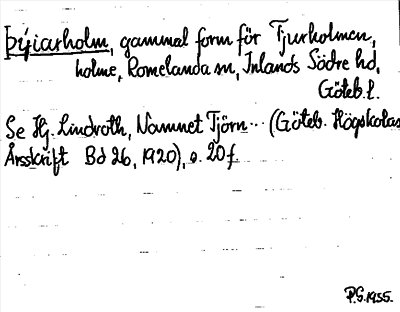 þýiarholm, gammal form för Tjurholmen,
holme, Romelanda sn, Inlands Södre hd,
Göteb. l.
Se Hj. Lindroth, Namnet Tjörn... (Göteb. Högskolas
Årsskrift Bd 26, 1920), s. 20 f.
P.G. 1955.